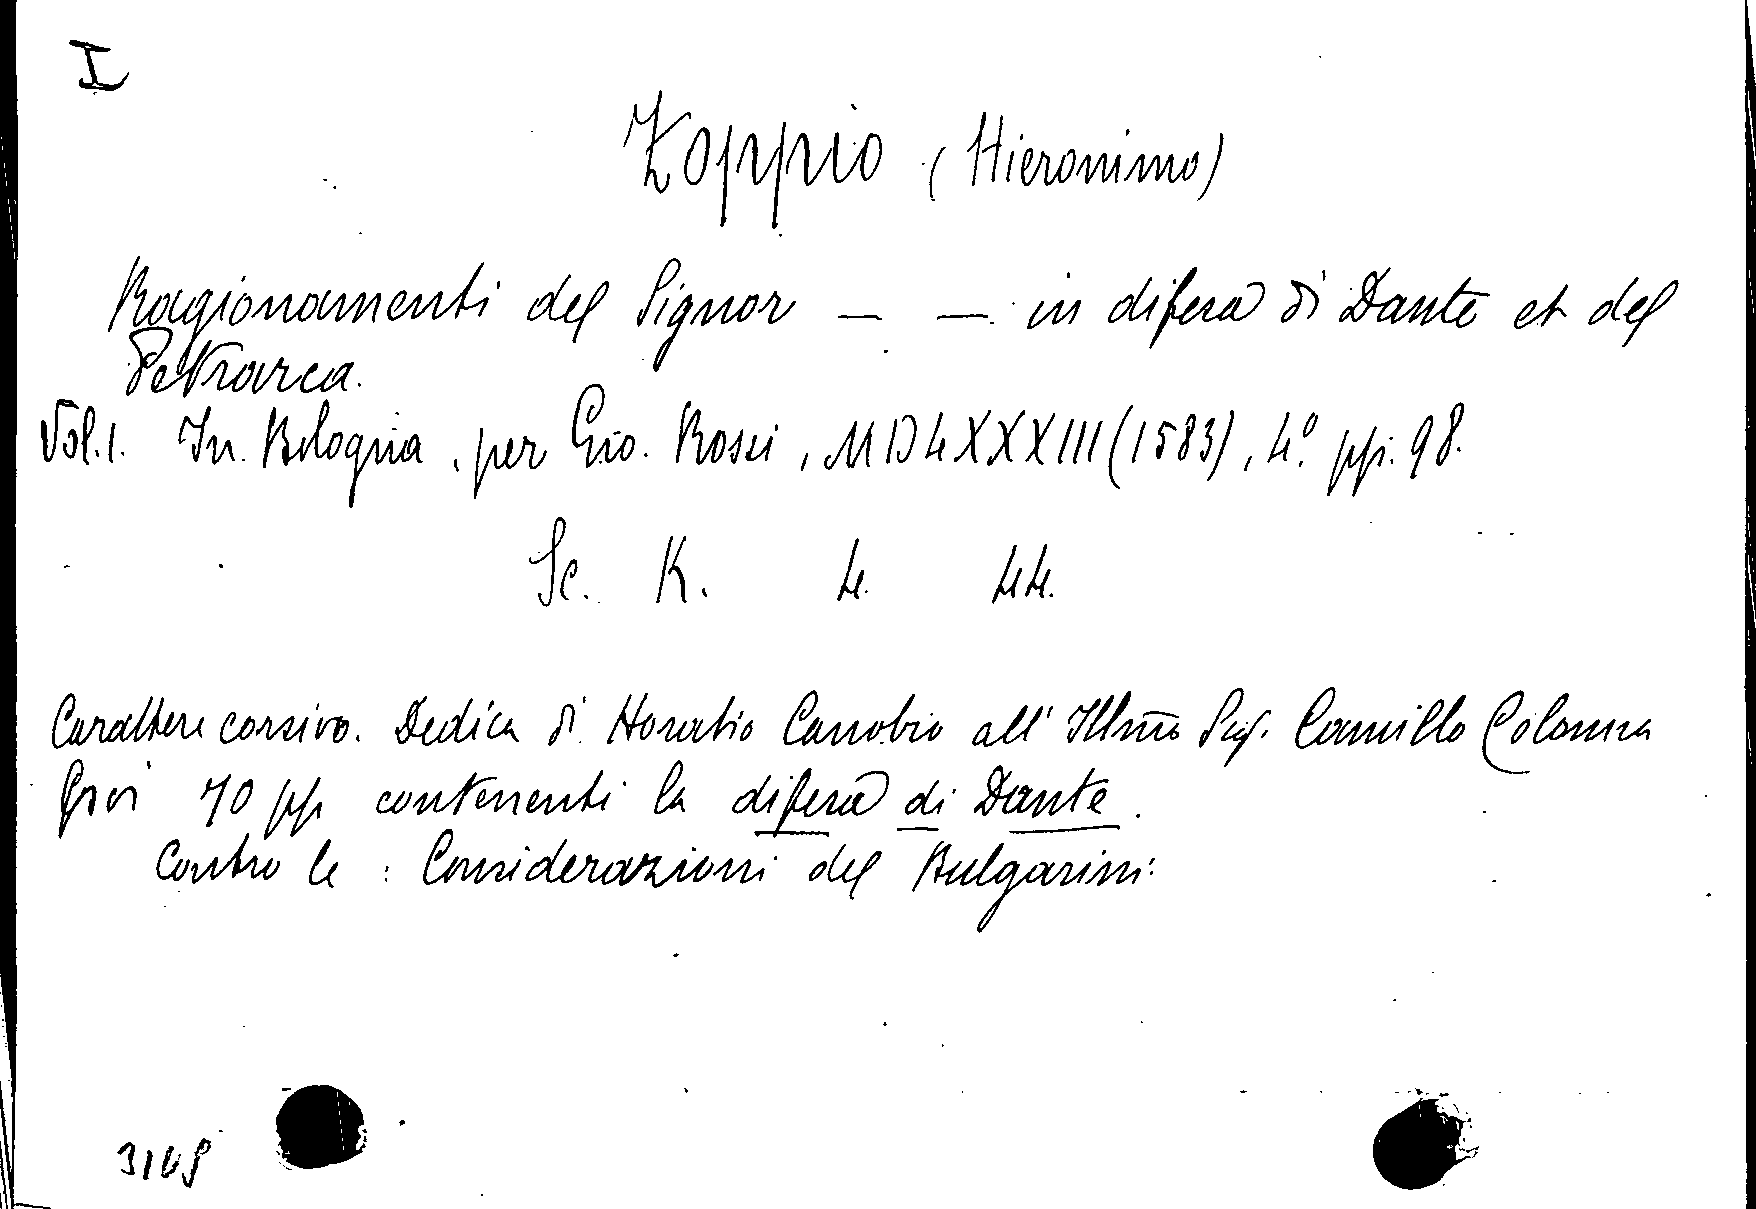 I
Zoppio (Hieronimo)
Ragionamenti del Signor — — in difesa di Dante et del
Petrarca.
Vol. 1. In Bologna, per Gio. Rossi, MDLXXXIII (1583), 4.° pp. 98.
Sc. K. 4. 44.
Carattere corsivo. Dedica di Horatio Canobio all' Ill.mo Sig. Camillo Colonna
Poi 70 pp. contenenti la difesa di Dante.
Contro le: Considerazioni del Bulgarini.